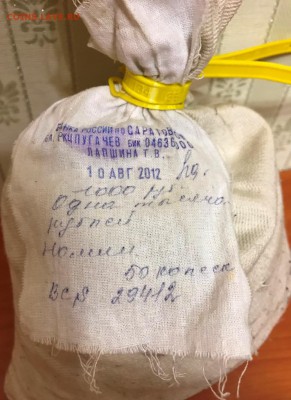 БАНКА РОССИИ ПО САРАТОВ
РКЦ ПУГАЧЕВ БИК 04636
ЛАПШИНА Г.В.
10 АВГ 2012
1000 
Одна тысяча
рублей
Номин.
50 копеек
29412